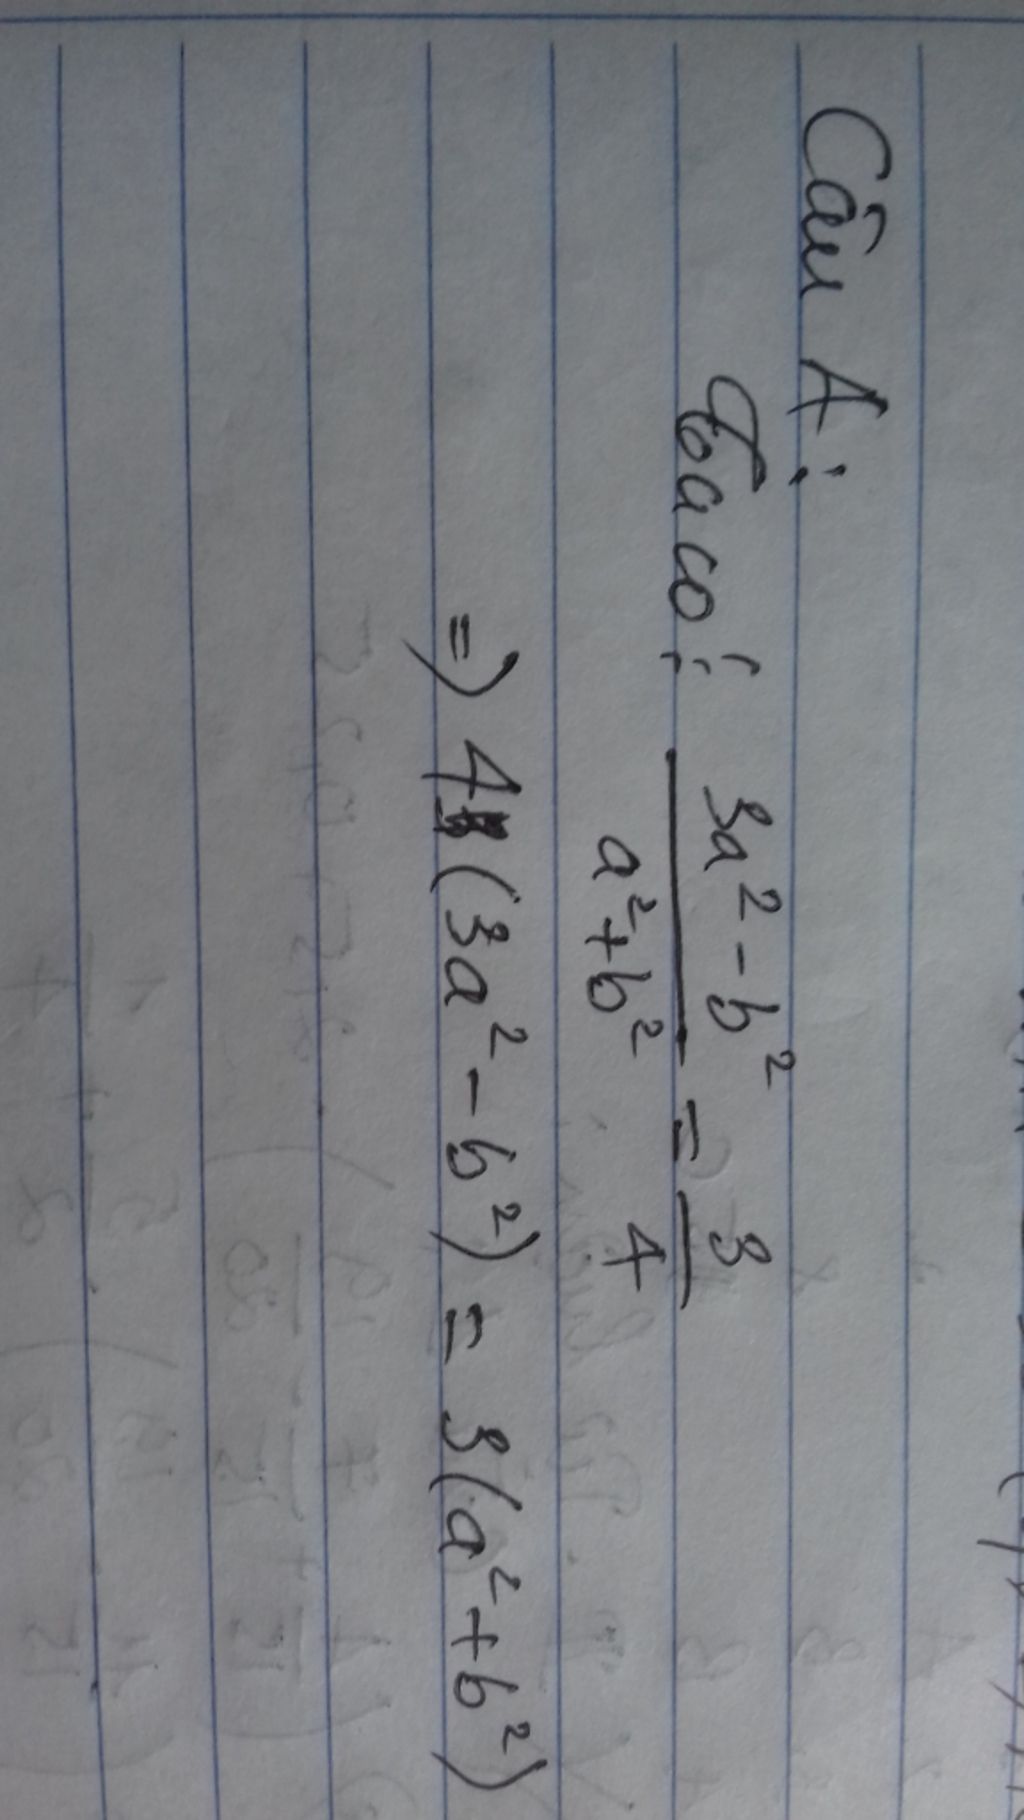 Câu A:
Ta có: 3a² - b² / a² + b² = 3/4
=) 4(3a² - b²) = 3(a² + b²)